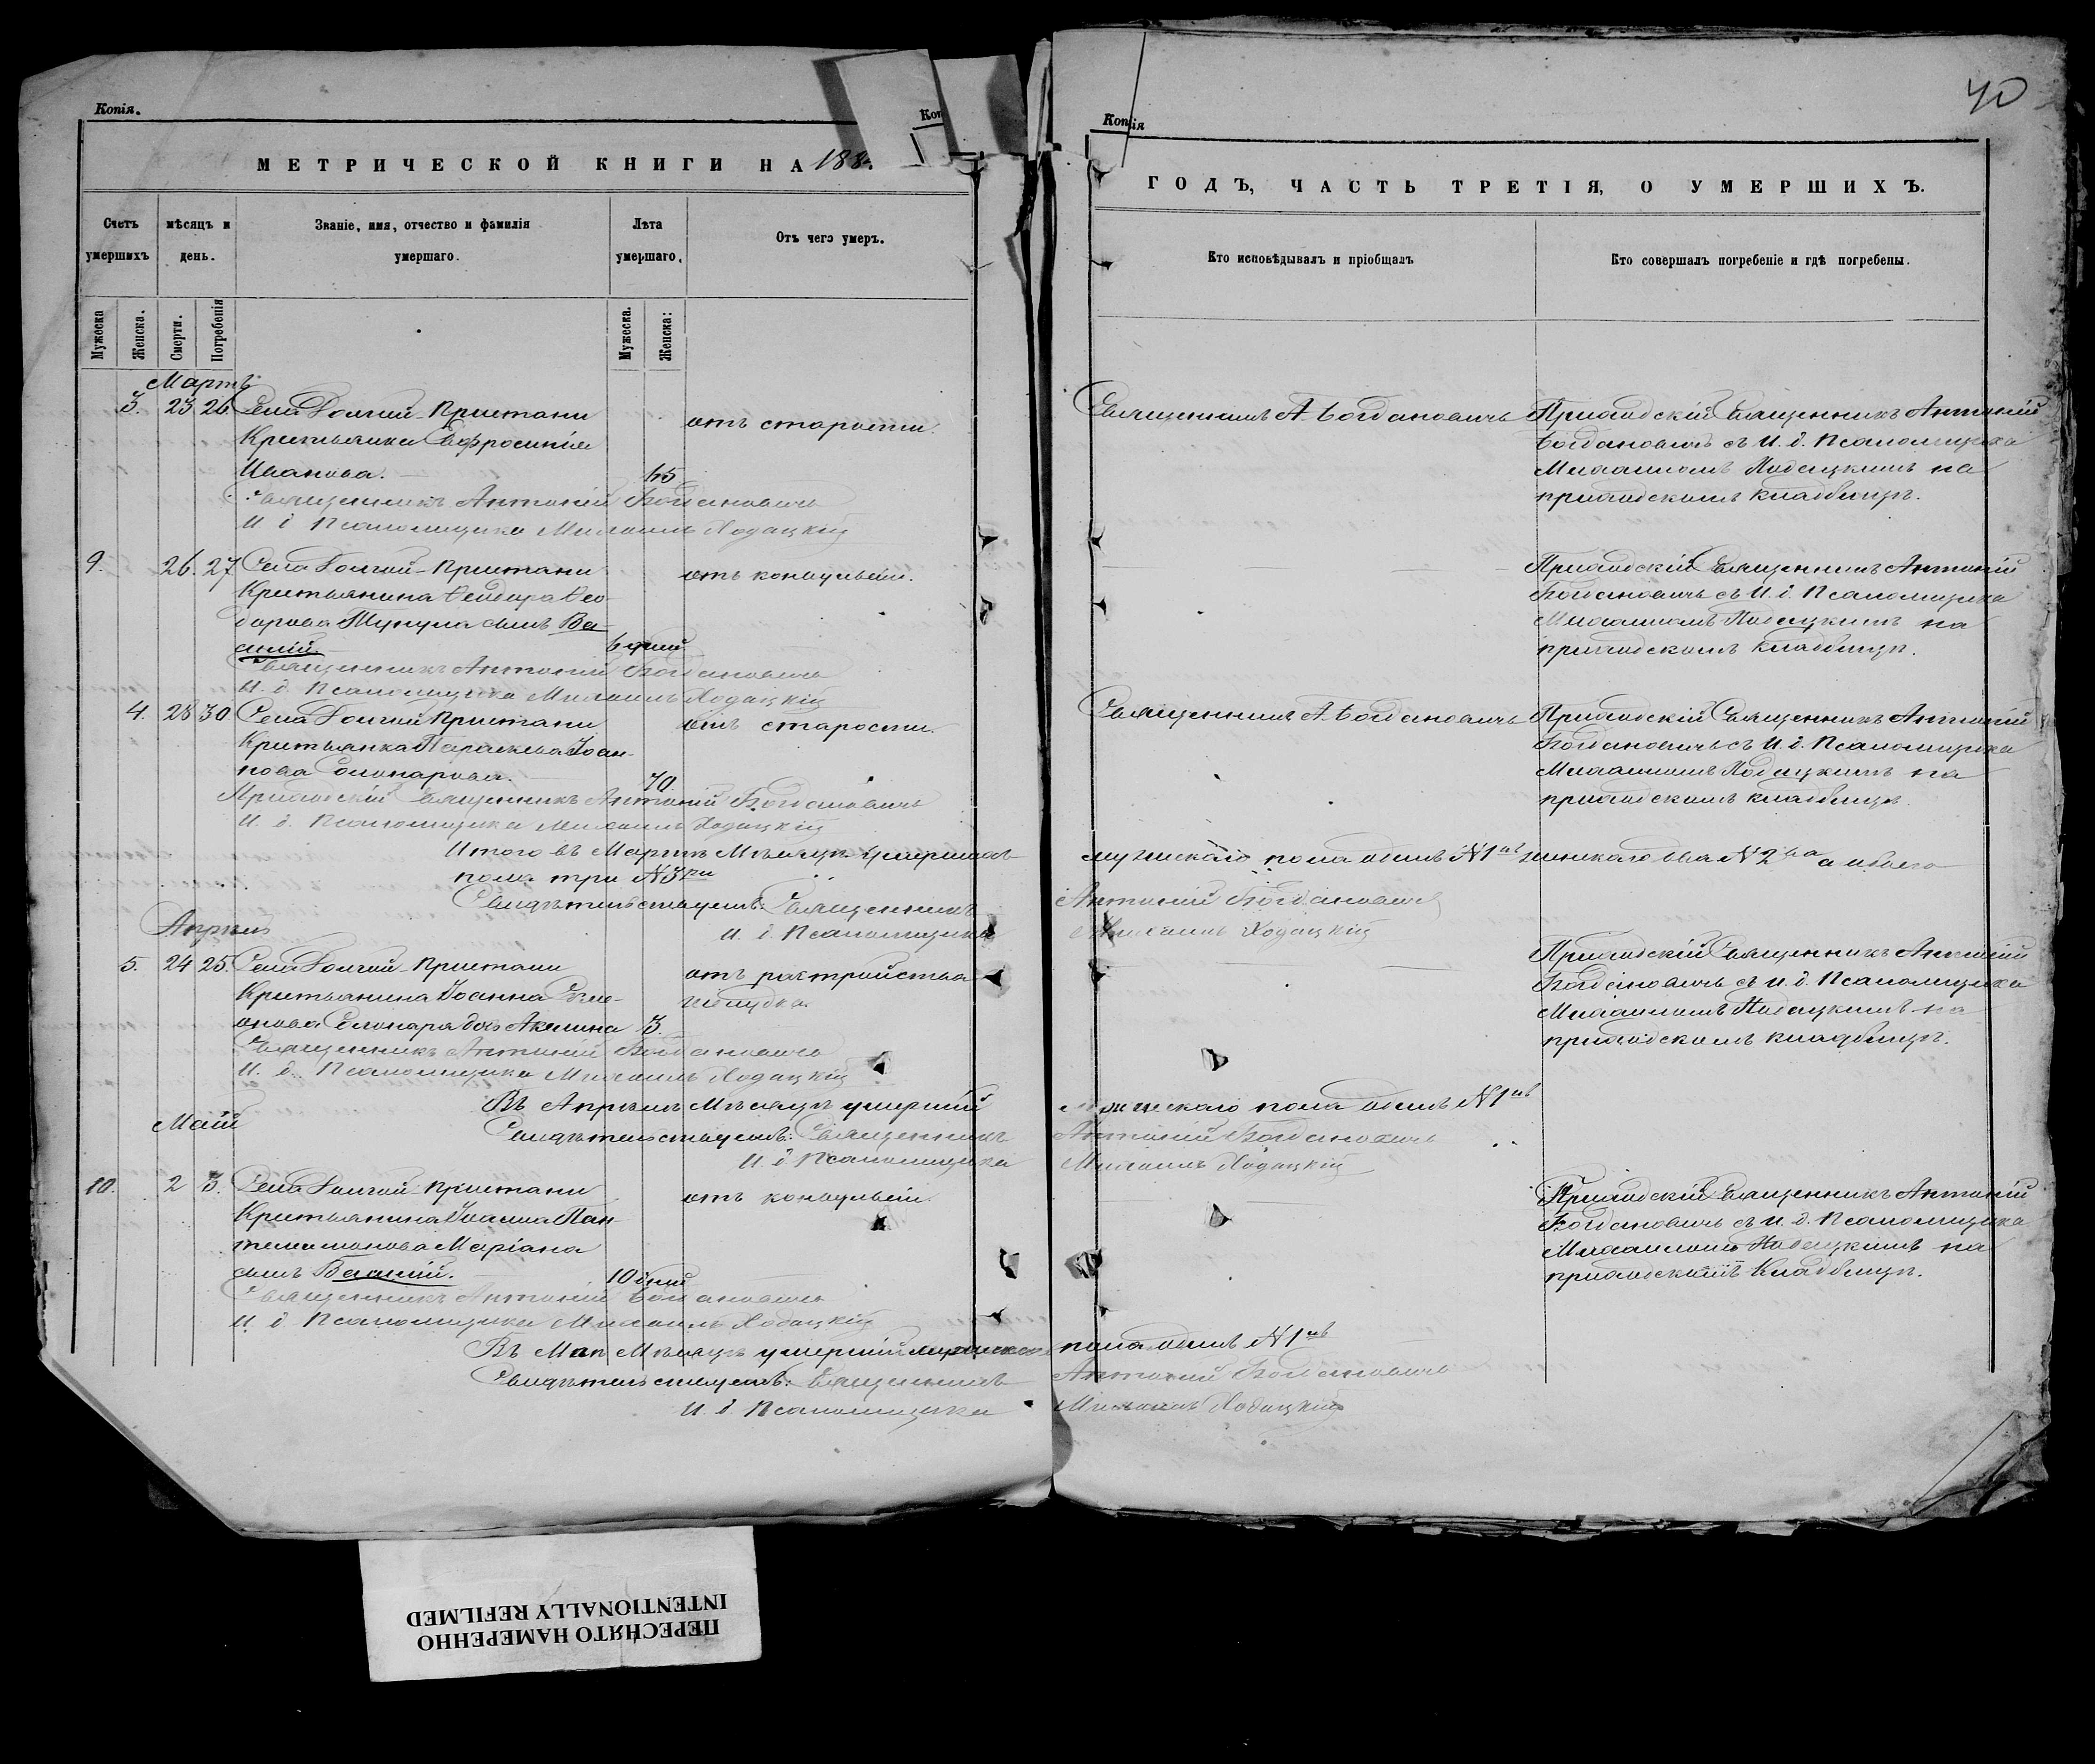 Копія.
Коп
МЕТРИЧЕСКОЙ КНИГИ НА 188
Счетъ умершихъ
мѣсяцъ и день.
Званіе, имя, отчество и фамилія умершаго.
Лѣта умершаго.
Отъ чего умеръ.
Мужеска
Женска.
Смерти.
Погребенія
Мужеска.
Женска:
Мартъ
3. 23 26. Села Долгой-Пристани
отъ старости.
Крестьянка Евфросинія
Иванова.
Священникъ Антоній Богдановичъ
И. д. Псаломщика Михаилъ Ходацкій
9. 26. 27 Села Долгой-Пристани
отъ конвульсіи.
Крестьянина Ѳеодора Ѳео-
дорова сынъ Ва-
силій.
6 дней
Священникъ Антоній Богдановичъ
И. д. Псаломщика Михаилъ Ходацкій
4. 28 30 Села Долгой Пристани
отъ старости.
Крестьянка Параскева Іоан-
нова Солонарова.
70.
Приходскій Священникъ Антоній Богдановичъ
И. д. Псаломщика Михаилъ Ходацкій
Итого въ Мартѣ Мѣсяцѣ умершихъ
пола три №3ри
Свидѣтельствуемъ: Священникъ
И. д. Псаломщика
Апрѣль
5. 24 25. Села Долгой-Пристани
отъ растройства
Крестьянина Іоанна Симе-
желудка.
онова Солонаря дочь Акилина 3.
Священникъ Антоній Богдановичъ
И. д. Псаломщика Михаилъ Ходацкій
Въ Апрѣлѣ Мѣсяцѣ умершій
Май
Свидѣтельствуемъ: Священникъ
И. д. Псаломщика
10. 2 3. Села Долгой-Пристани
отъ конвульсіи.
Крестьянина Іоанна Пан-
телимонова Маріана
сынъ Василій.
10 дней
Священникъ Антоній Богдановичъ
И. д. Псаломщика Михаилъ Ходацкій
Въ Маѣ Мѣсяцѣ умершій мужескаго
Свидѣтельствуемъ: Священникъ
И. д. Псаломщика
40
Копія
ГОДЪ, ЧАСТЬ ТРЕТІЯ, О УМЕРШИХЪ.
Кто исповѣдывалъ и пріобщалъ
Кто совершалъ погребеніе и гдѣ погребены.
Священникъ А. Богдановичъ
Приходскій Священникъ Антоній
Богдановичъ съ И. д. Псаломщика
Михаиломъ Ходацкимъ на
приходскомъ кладбищѣ.
Приходскій Священникъ Антоній
Богдановичъ съ И. д. Псаломщика
Михаиломъ Ходацкимъ на
приходскомъ кладбищѣ.
Священникъ А. Богдановичъ
Приходскій Священникъ Антоній
Богдановичъ съ И. д. Псаломщика
Михаиломъ Ходацкимъ на
приходскомъ кладбищѣ.
мужскаго пола одинъ №1нъ женскаго два №2ва а обоего
Антоній Богдановичъ
Михаилъ Ходацкій
Приходскій Священникъ Антоній
Богдановичъ съ и. д. Псаломщика
Михаиломъ Ходацкимъ на
приходскомъ кладбищѣ.
пола одинъ №1нъ
Антоній Богдановичъ
Михаилъ Ходацкій
Приходскій Священникъ Антоній
Богдановичъ съ и. д. Псаломщика
Михаиломъ Ходацкимъ на
кладбищѣ.
пола одинъ №1нъ
Антоній Богдановичъ
Михаилъ Ходацкій
ПЕРЕСНЯТО НАМЕРЕННО
INTENTIONALLY REFILMED